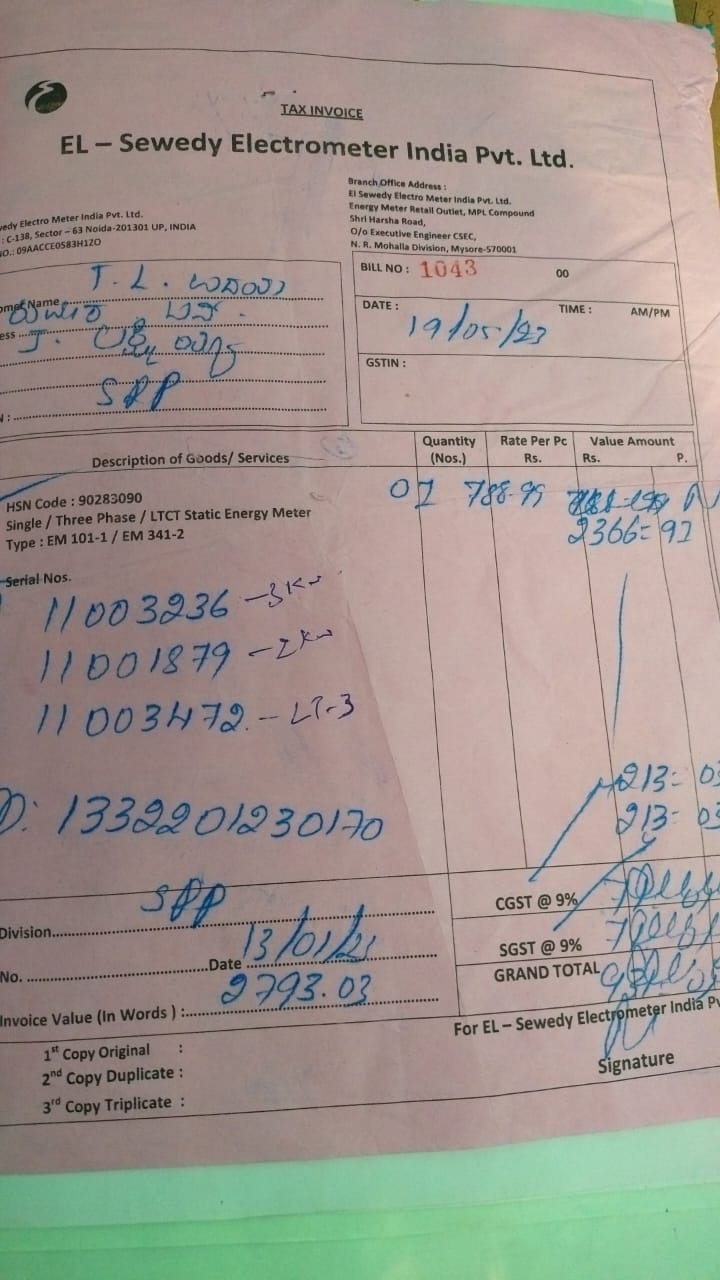 TAX INVOICE
EL – Sewedy Electrometer India Pvt. Ltd.
wedy Electro Meter India Pvt. Ltd.
: C-138, Sector – 63 Noida-201301 UP, INDIA
NO.: 09AACCE0583H1ZO
Branch Office Address :
El Sewedy Electro Meter India Pvt. Ltd.
Energy Meter Retail Outlet, MPL Compound
Shri Harsha Road,
O/o Executive Engineer CSEC,
N. R. Mohalla Division, Mysore-570001
BILL NO : 1043 00
DATE : 19/05/23 TIME : AM/PM
GSTIN :
omer Name T. L.
ess J.
SRP
N :
Description of Goods/ Services Quantity (Nos.) Rate Per Pc Rs. Value Amount Rs. P.
HSN Code : 90283090 788-99
Single / Three Phase / LTCT Static Energy Meter 2366=97
Type : EM 101-1 / EM 341-2
Serial Nos.
11003236 - 3KW
11001879 - 2KW
11003472 - LT-3
213= 03
213= 03
D: 1332201230170
CGST @ 9%
SGST @ 9%
GRAND TOTAL
Division SRP
No. Date 13/01/21
Invoice Value (In Words ) : 2793.03
For EL – Sewedy Electrometer India Pv
Signature
1st Copy Original :
2nd Copy Duplicate :
3rd Copy Triplicate :